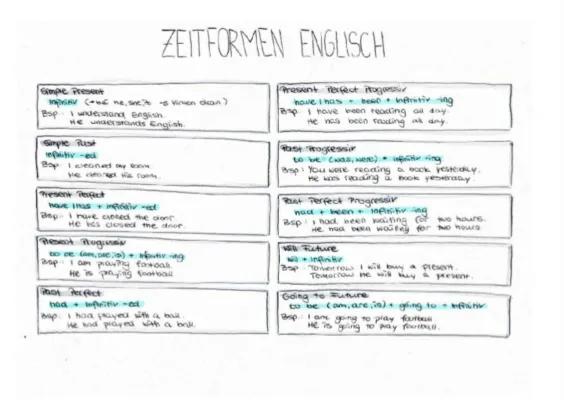 ZEITFORMEN ENGLISCH
Simple Present
Infinitiv (+bei he, she, it -s hinten dran)
Bsp.: I understand English.
He understands English.
Simple Past
Infinitiv -ed
Bsp.: I cleaned my room.
He cleaned his room.
Present Perfect
have / has + Infinitiv -ed
Bsp.: I have closed the door.
He has closed the door.
Present Progressiv
to be (am, are, is) + Infinitiv -ing
Bsp.: I am playing football.
He is playing football
Past Perfect
had + Infinitiv -ed
Bsp.: I had played with a ball.
He had played with a ball.
Present Perfect Progressiv
have / has + been + Infinitiv -ing
Bsp.: I have been reading all day.
He has been reading all day.
Past Progressiv
to be (was, were) + Infinitiv -ing
Bsp.: You were reading a book yesterday.
He was reading a book yesterday
Past Perfect Progressiv
had + been + Infinitiv -ing
Bsp.: I had been waiting for two hours.
He had been waiting for two hours
Will Future
will + Infinitiv
Bsp.: Tomorrow I will buy a present.
Tomorrow He will buy a present.
Going to Future
to be (am, are, is) + going to + Infinitiv
Bsp.: I am going to play football
He is going to play football.